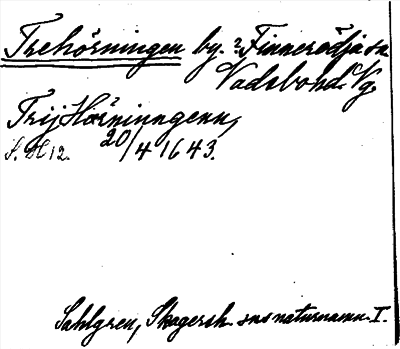 Trehörningen by. ? Finnerödja sn
Vadsbo hd. Vg.
Trij Hörninngenn,
S. H 12. 20/4 1643.
Sahlgren, Skagersh. sns naturnamn I.